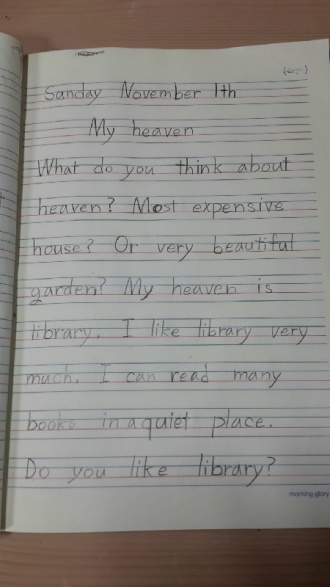 Sunday November 1th
My heaven
What do you think about
heaven? Most expensive
house? Or very beautiful
garden? My heaven is
library. I like library very
much. I can read many
books in a quiet place.
Do you like library?
morning glory